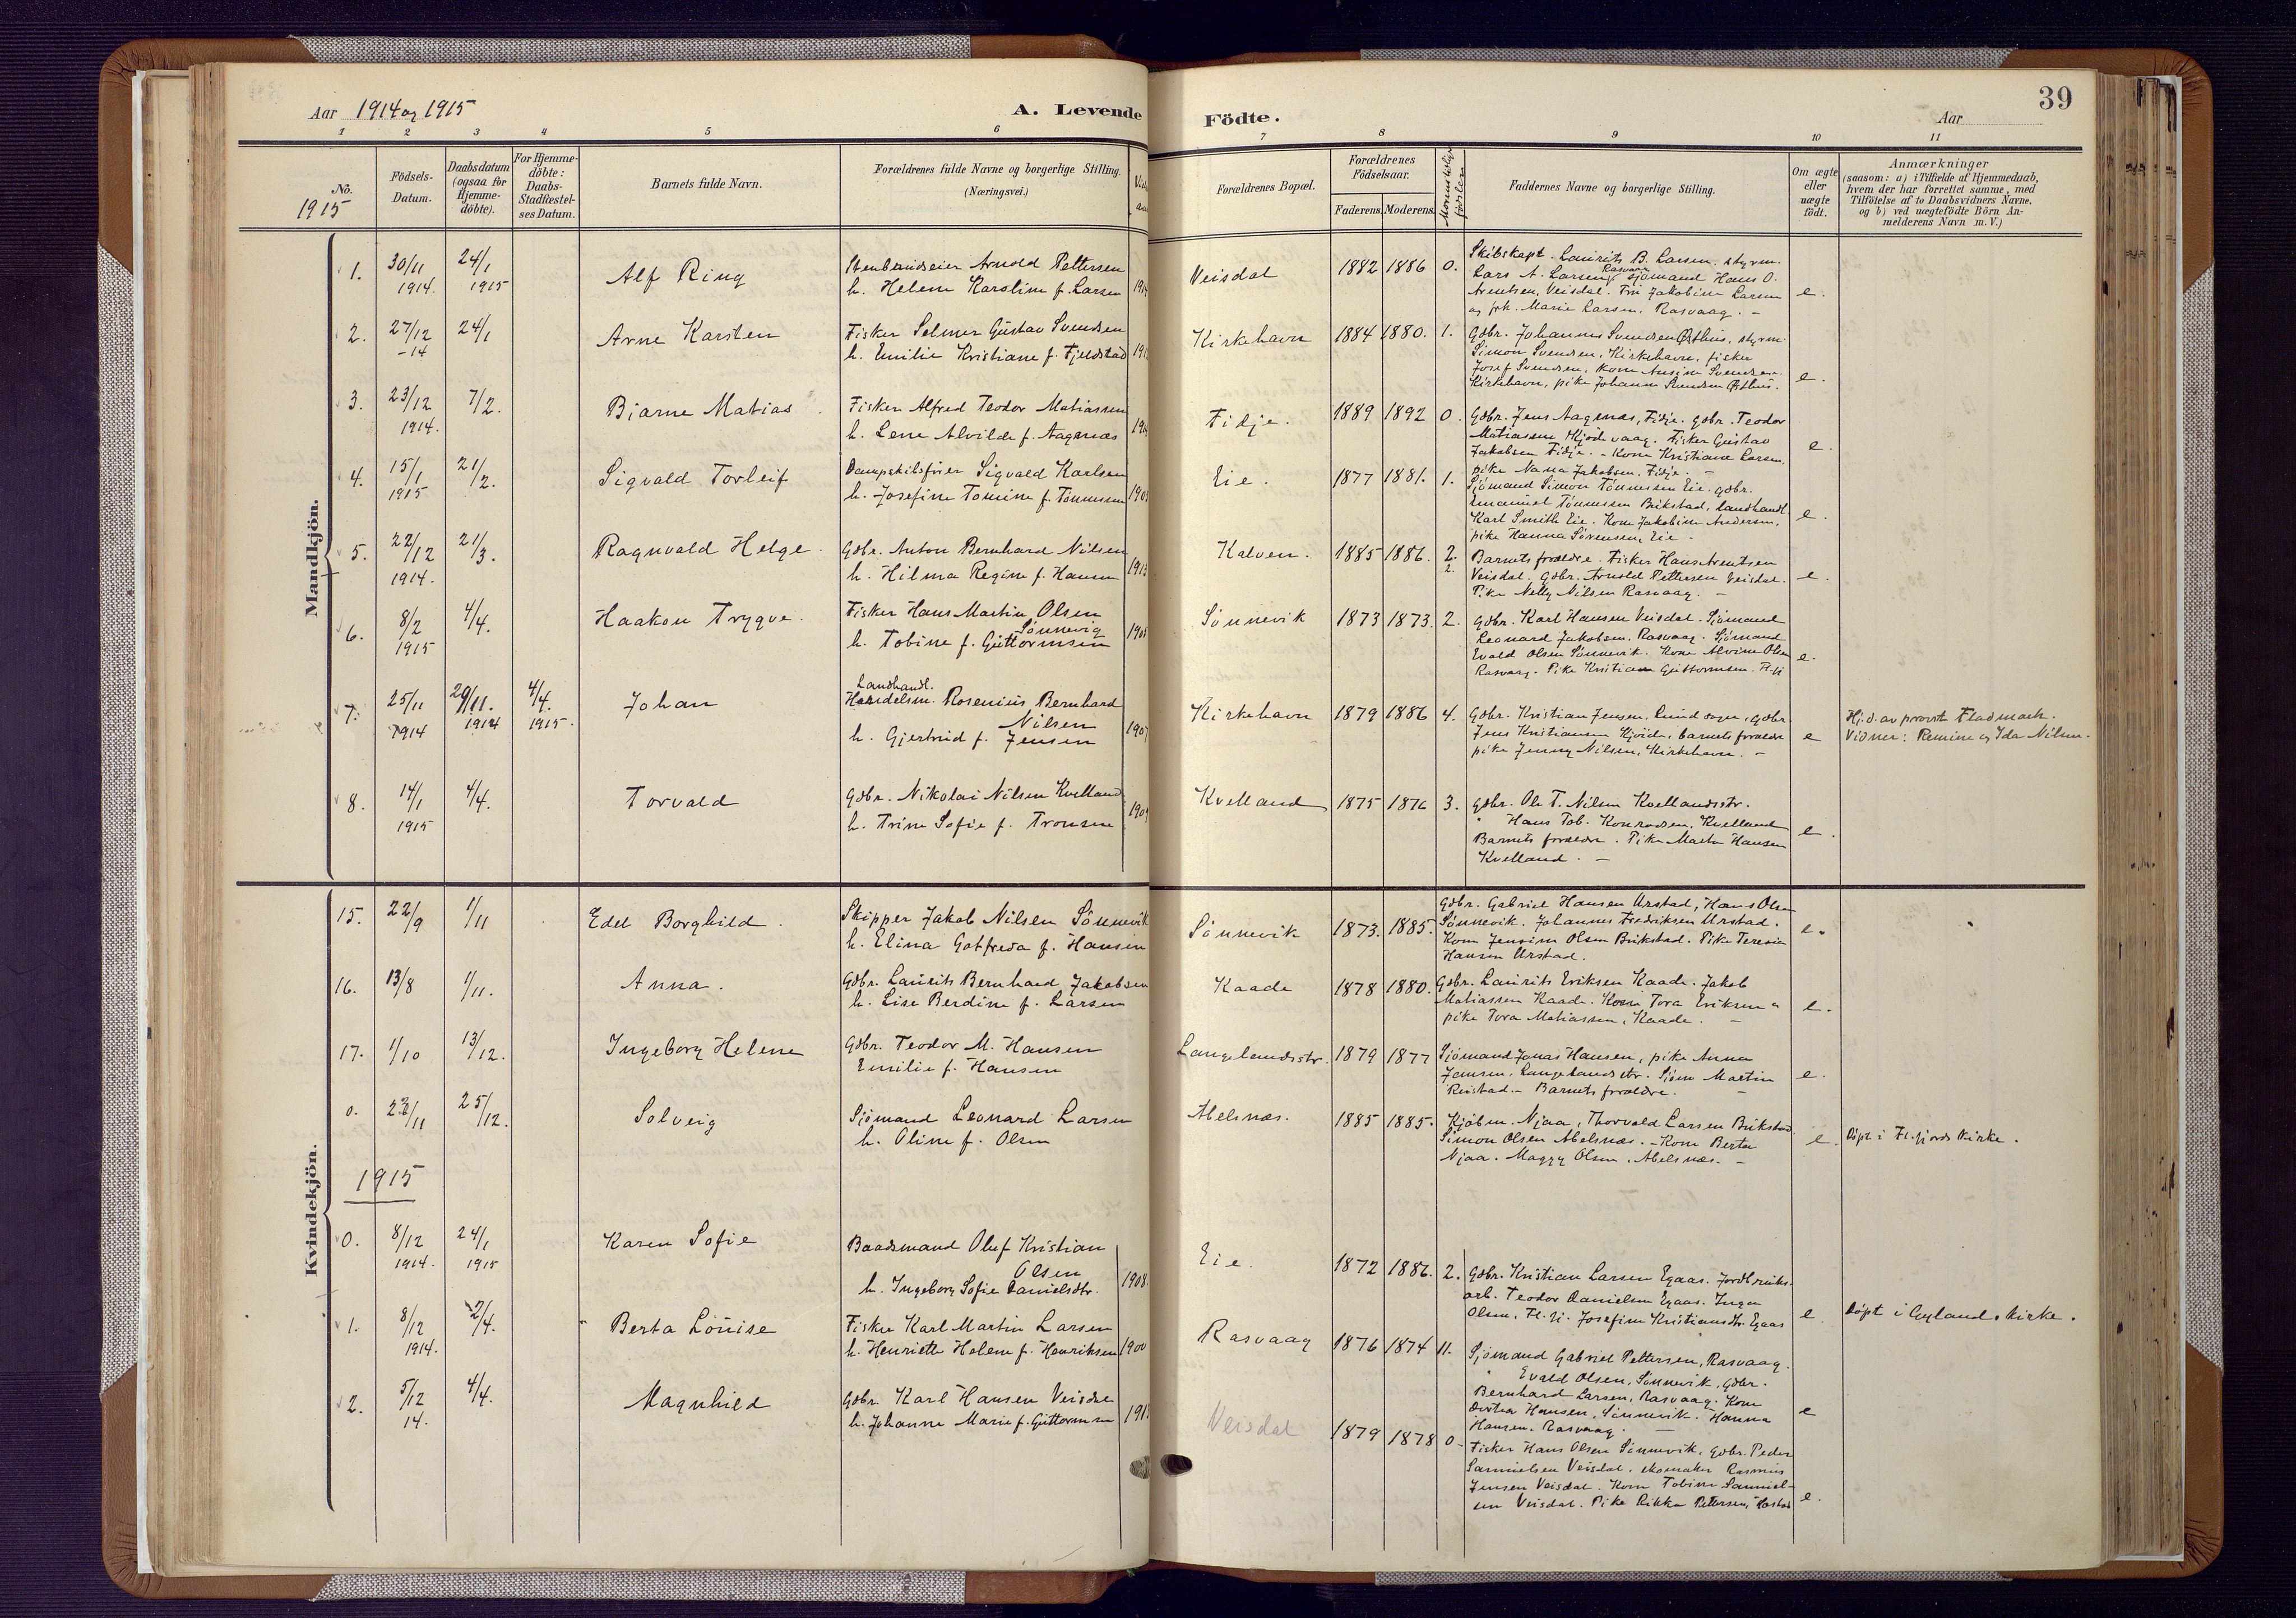 Aar 1914 og 1915
A. Levende
Födte.
Aar
39
1 2 3 4 5 6 7 8 9 10 11
No.
1915
Födsels-
Datum.
Daabsdatum
(ogsaa for
Hjemme-
döbte).
For Hjemme-
döbte:
Daabs-
Stadfæstel-
ses Datum.
Barnets fulde Navn.
Forældrenes fulde Navne og borgerlige Stilling.
(Næringsvei.)
Forældrenes Bopæl.
Forældrenes
Födselsaar.
Faderens. Moderens.
Faddernes Navne og borgerlige Stilling.
Om ægte
eller
uægte
födt.
Anmærkninger
(saasom: a) i Tilfælde af Hjemmedaab,
hvem der har forrettet samme, med
Tilföielse af to Daabsvidners Navne,
og b) ved uægtefödte Börn An-
melderens Navn m. V.)
Mandkjön.
1. 30/11 1914. 24/1 1915 Alf Ring
Arnold Pettersen
h. Helene Karoline f. Larsen
Veisdal 1882 1886 0.
Skibskapt. Laurits B. Larsen, styrm.
Lars A. Larsen, Rasvaag Sjömand Hans O.
Arentsen, Veisdal. Fru Jakobine Larsen
og frk. Marie Larsen, Rasvaag. –
e.
2. 27/12 -14 24/1 Arne Karsten
Fisker Selmer Gustav Svendsen
h. Emilie Kristiane f. Fjeldstad
Kirkehavn 1884 1880. 1.
Gdbr. Johannes Svendsen Østhus, styrm.
Simon Svendsen, Kirkehavn, fisker
Josef Svendsen, kone Ansine Svendsen
Kirkehavn, pike Johanne Svendsen Østhus.
e.
3. 23/12 1914. 7/2. Bjarne Matias
Fisker Alfred Teodor Matiassen
h. Lene Alvilde f. Aagenæs
Fidje. 1889 1892 0.
Gdbr. Jens Aagenæs, Fidje. gdbr. Teodor
Matiassen. Fisker Gustav
Jakobsen Fidje. – Kone Kristiane Larsen,
pike Nanna Jakobsen, Fidje. –
e.
4. 15/1 1915 21/2. Sigvald Torleif
Sigvald Karlsen
h. Josefine Tomine f. Tönnessen
Eie. 1877 1881. 1.
Sjömand Simon Tönnessen Eie. gdbr.
Emanuel Tönnessen Brikstad, landhandl.
Karl Smith Eie. Kone Jakobine Andersen,
pike Hanna Sörensen, Eie –
e.
5. 22/12 1914. 21/3. Ragnvald Helge.
Gdbr. Anton Bernhard Nilsen
h. Hilma Regine f. Hansen
1913
Kalven. 1885 1886. 2.
2.
Barnets forældre. Fisker Hans Arentsen
Veisdal. Gdbr. Arnold Pettersen Veisdal.
Pike Nelly Nilsen Rasvaag. –
e.
6. 8/2 1915 4/4. Haakon Trygve.
Fisker Hans Martin Olsen
Sönnevig
h. Tobine f. Guttormsen
Sönnevik 1873 1873. 2.
Gdbr. Karl Hansen Veisdal. Sjömand
Leonard Jakobsen. Rasvaag. Sjömand
Evald Olsen Sönnevik. Kone Alvine Olsen
Rasvaag. Pike Kristiane Guttormsen.
e.
7. 25/11 1914 29/11. 1914 4/4. 1915. Johan
Landhandl.
Handelsm. Rosenius Bernhard
Nilsen
h. Gjertrud f. Jensen
1907
Kirkehavn 1879 1886 4.
Gdbr. Kristian Jensen, gdbr.
Jens Kristiansen, barnets forældre
pike Jenny Nilsen, Kirkehavn. –
e
Hj.d. av provst Fladmark.
Vidner: Remine og Ida Nilsen.
8. 14/1 1915 4/4. Torvald
Gdbr. Nikolai Nilsen Kvelland
h. Trine Sofie f. Tronsen
1909
Kvelland 1875 1876 3.
Gdbr. Ole T. Nilsen Kvellandsstr.
" Hans Tob. Konradsen, Kvelland
Barnets forældre. Pike Marta Hansen
Kvelland. –
e.
Kvindekjön.
15. 22/9 1/11 Edel Borghild.
Skipper Jakob Nilsen Sönnevik
h. Elina Gotfreda f. Hansen
Sönnevik 1873. 1885.
Gdbr. Gabriel Hansen Urstad, Hans Olsen
Sönnevik. Johannes Fredriksen Urstad.
Kone Jensine Olsen Brikstad. Pike Teresia
Hansen Urstad.
e.
16. 13/8 1/11. Anna.
Gdbr. Laurits Bernhard Jakobsen
h. Lise Berdine f. Larsen
Kaade 1878 1880.
Gdbr. Laurits Eriksen Kaade. Jakob
Matiassen Kaade. Kone Tora Eriksen "
pike Tora Matiassen, Kaade. –
e.
17. 1/10 13/12. Ingeborg Helene
Gdbr. Teodor M. Hansen
Emilie f. Hansen
Langelandsstr. 1879 1877
Sjömand Jonas Hansen, pike Anna
Jensen, Langelandsstr. Sjöm Martin
– Barnets forældre. –
e.
0. 23/11 25/12. Solveig
Sjömand Leonard Larsen
h. Oline f. Olsen
Abelsnæs. 1885 1885.
Kjöbm. Njaa, Thorvald Larsen Brikstad
Simon Olsen Abelsnæs. – Kone Berta
Njaa. Maggy Olsen. Abelsnæs. –
e.
Döpt i Fl.fjords kirke.
1915
0. 8/12 1914. 24/1 1915 Karen Sofie
Baadsmand Oluf Kristian
Olsen
h. Ingeborg Sofie Danielsdtr.
1908.
Eie. 1872 1886. 2.
Gdbr. Kristian Larsen Egaas. Jordbruks-
arb. Teodor Danielsen Egaas. Inga
Olsen, Josefine Kristiansdtr. Egaas
e
Döpt i Gyland kirke.
1. 8/12 1914. 2/4. Berta Louise
Fisker Karl Martin Larsen
h. Henriette Helene f. Henriksen
1900
Rasvaag 1876 1874 11.
Sjömand Gabriel Pettersen, Rasvaag.
" Evald Olsen, Sönnevik, gdbr.
Bernhard Larsen, Rasvaag. Kone
Hansen, Sönnevik. Hanna
Hansen. Rasvaag. –
e
2. 5/12 14. 4/4. Magnhild
Gdbr. Karl Hansen Veisdal
h. Johanne Marie f. Guttormsen
Veisdal 1879 1878 0.
Fisker Hans Olsen Sönnevik, gdbr. Peder
Samuelsen Veisdal. skomaker Rasmus
Jensen Veisdal. Kone Tobine Samuel-
sen Veisdal. Pike Rikka Pettersen,
e.